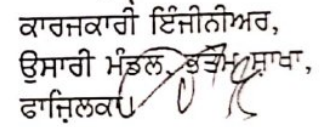 ਕਾਰਜਕਾਰੀ ਇੰਜੀਨੀਅਰ,
ਉਸਾਰੀ ਮੰਡਲ, ਭਤੋਮ ਸ਼ਾਖਾ,
ਫਾਜ਼ਿਲਕਾ